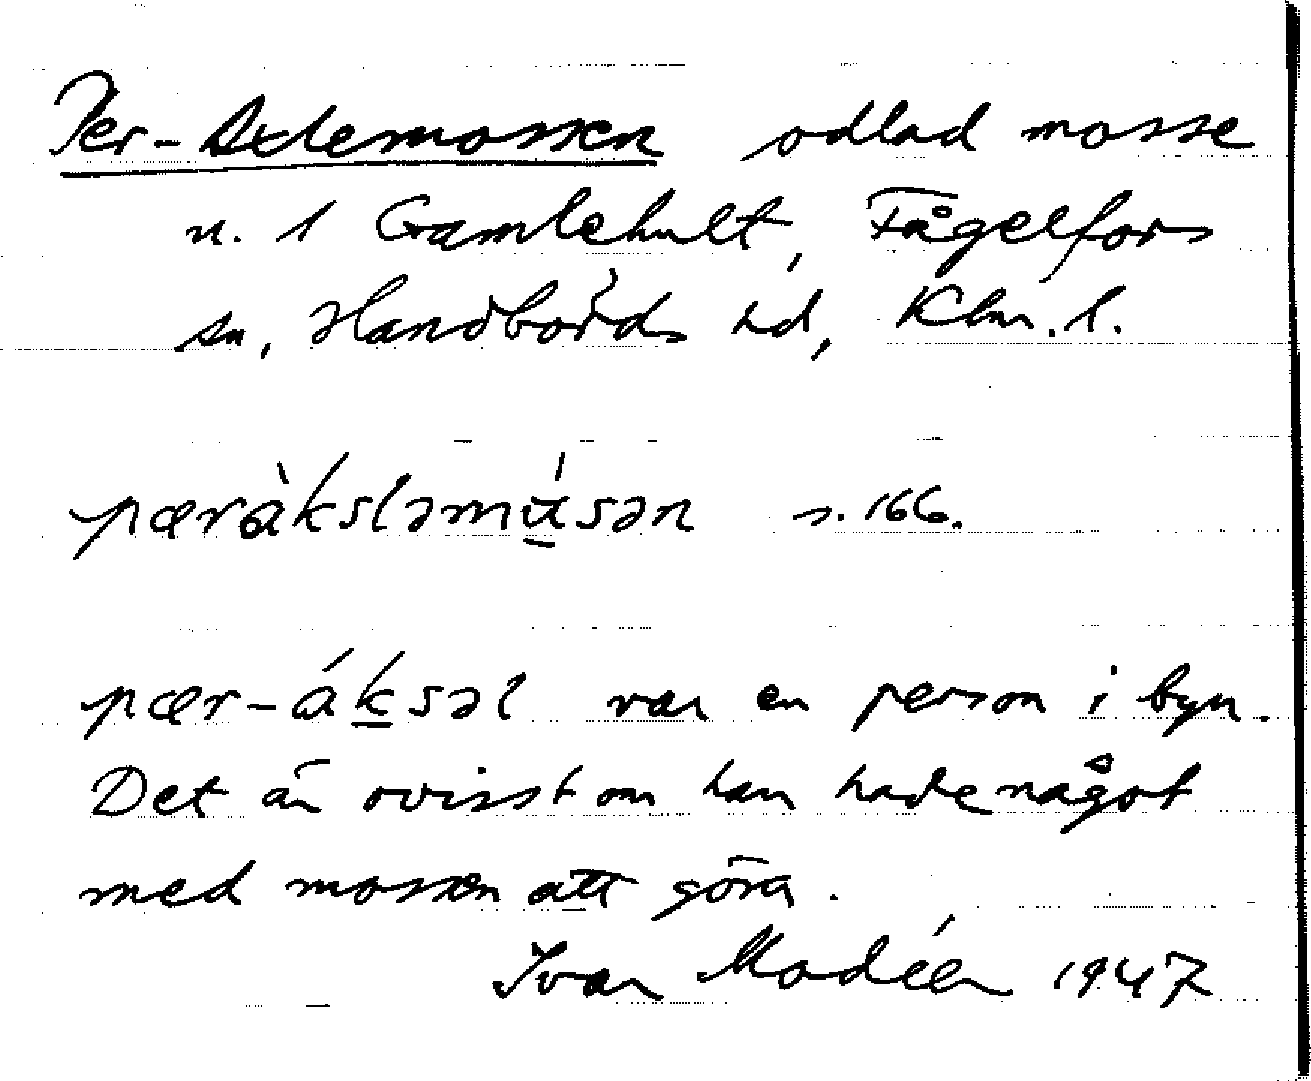 Per-Axlemossen odlad mosse
n. 1 Gamlehult, Fågelfors
sn, Handbörds hd, Klm. l.
pæràksləmúsən s. 166.
pær-áksəl var en person i byn.
Det är ovisst om han hade något
med mossen att göra.
Ivar Modéer 1947